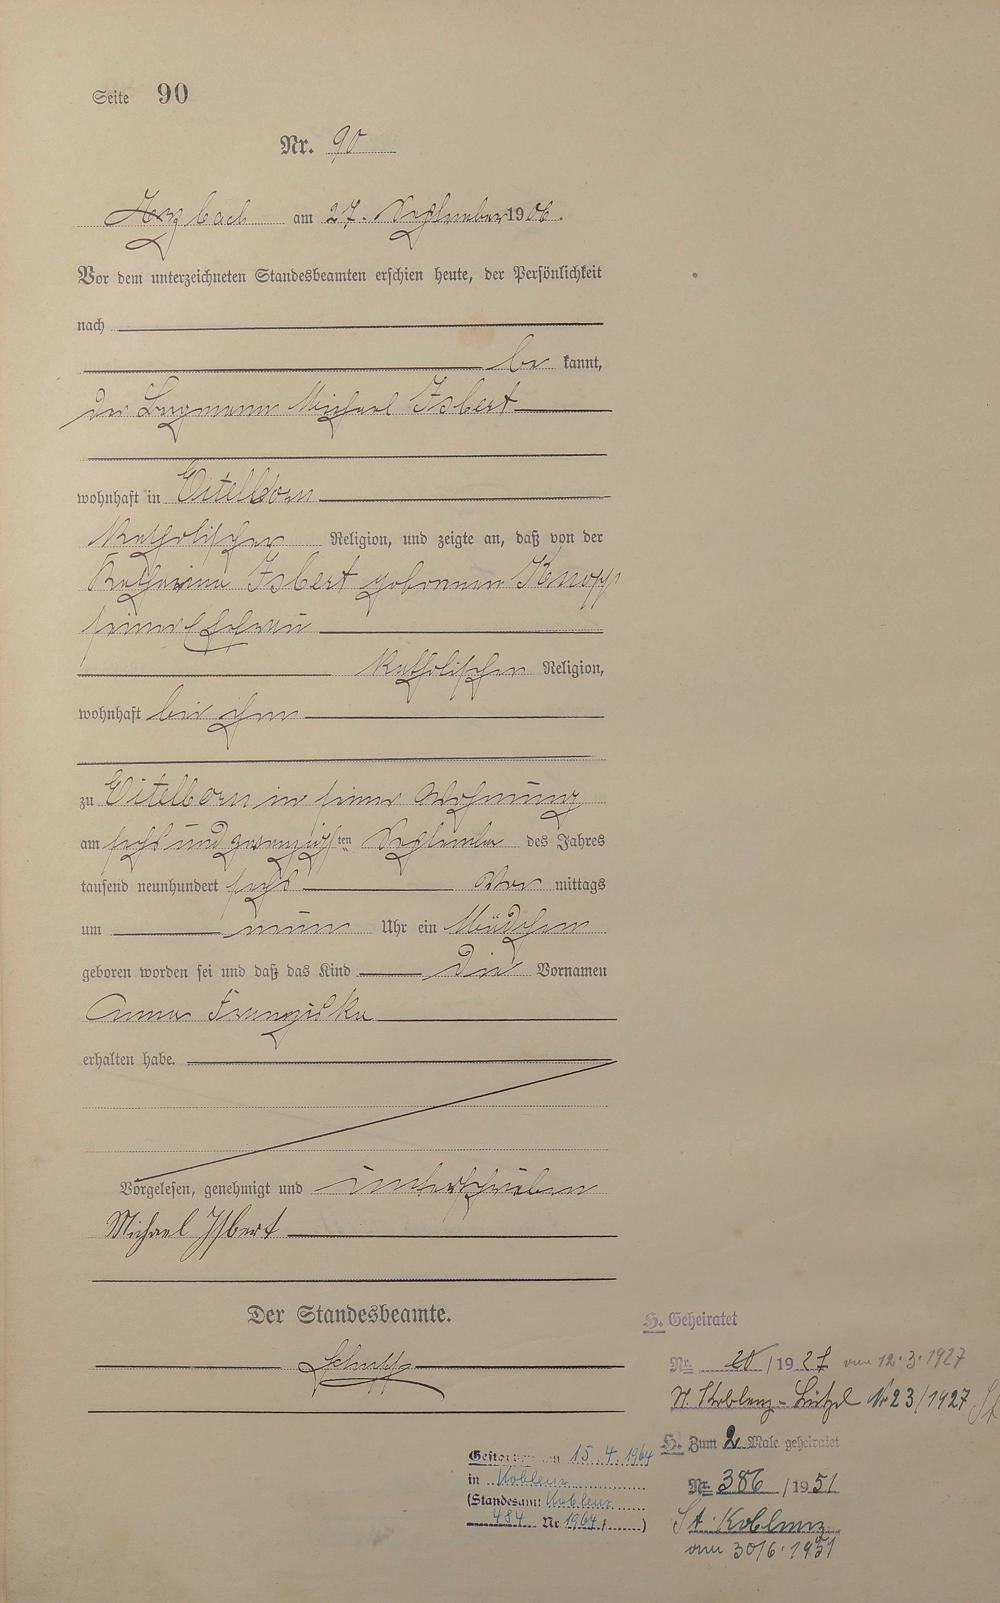 Seite 90
Nr. 90
Arzbach am 27. September 1906.
Vor dem unterzeichneten Standesbeamten erschien heute, der Persönlichkeit
nach
be kannt,
der Bergmann Michael Isbert
wohnhaft in Eitelborn
katholischer Religion, und zeigte an, daß von der
Katharina Isbert geborenen Knopp
seiner Ehefrau
katholischer Religion,
wohnhaft bei ihm
zu Eitelborn in seiner Wohnung
am sechsundzwanzigsten September des Jahres
tausend neunhundert sechs Vor mittags
um neun Uhr ein Mädchen
geboren worden sei und daß das Kind die Vornamen
Anna Franziska
erhalten habe.
Vorgelesen, genehmigt und unterschrieben
Michael Isbert
Der Standesbeamte.
Schupp
H. Geheiratet
Nr. 20/1927 vom 12.3.1927
St. Koblenz-Lützel Nr 23/1927
H. Zum 2 Male geheiratet
Nr. 386/1951
St. Koblenz
vom 30/6.1951
Gestorben am 15.4.1964
in Koblenz
(Standesamt Koblenz
484 Nr. 1964/)